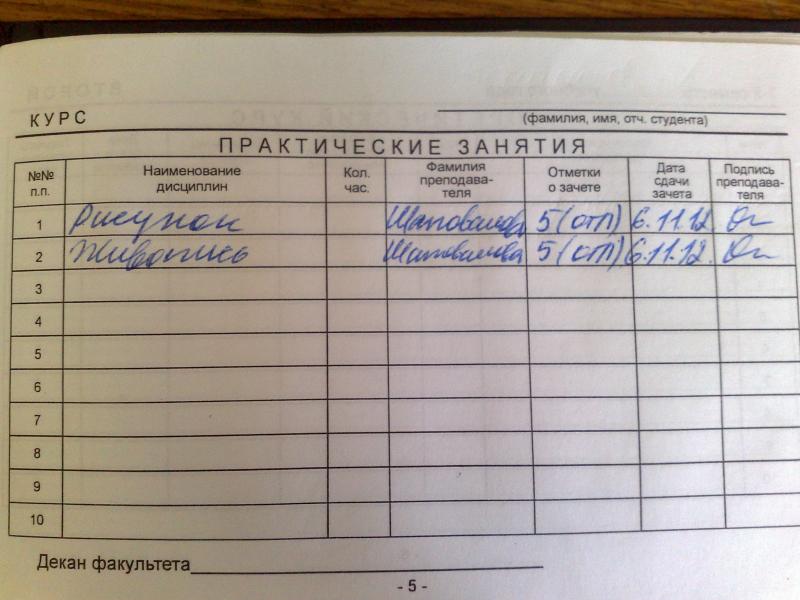 КУРС
(фамилия, имя, отч. студента)
ПРАКТИЧЕСКИЕ ЗАНЯТИЯ
№№ п.п. Наименование дисциплин Кол. час. Фамилия преподава-теля Отметки о зачете Дата сдачи зачета Подпись преподава-теля
1 Рисунок Шаповалова 5 (отл) 6.11.12.
2 Живопись Шаповалова 5 (отл) 6.11.12.
3
4
5
6
7
8
9
10
Декан факультета
- 5 -